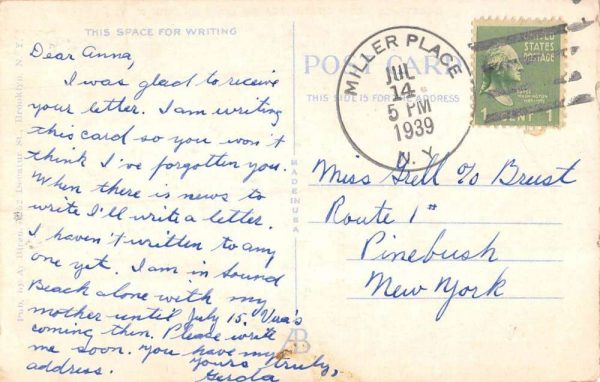 THIS SPACE FOR WRITING
Dear Anna,
I was glad to receive
your letter. I am writing
this card so you won't
think I've forgotten you.
When there is news to
write I'll write a letter.
I haven't written to any
one yet. I am in Sound
Beach alone with my
mother until July 15. Vera's
coming then. Please write
me soon. You have my
address. Yours truly,
Gerda
Pub. by A. St., Brooklyn, N. Y.
MADE IN U.S.A.
AB
POST CARD
THIS SIDE IS FOR THE ADDRESS
MILLER PLACE
JUL
14
5 PM
1939
N. Y.
UNITED
STATES
POSTAGE
1 CENT 1
Miss Grell c/o Breist
Route 1
Pinebush
New York